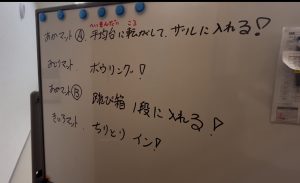 へいきんだい ころ
あかマット Ⓐ 平均台に転がして、ザルに入れる!
みどりマット ボウリング!
あかマット Ⓑ 跳び箱1段に入れる!
きいろマット ちりとりイン!